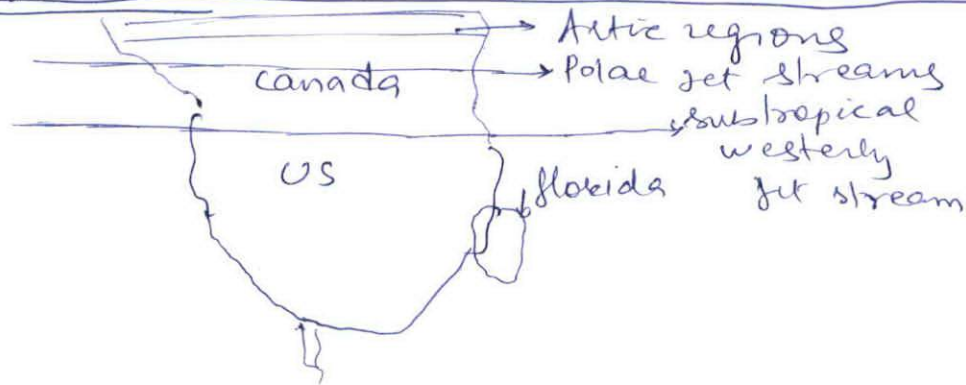 Artic regions
Polar jet streams
canada
subtropical
westerly
jet stream
US
florida